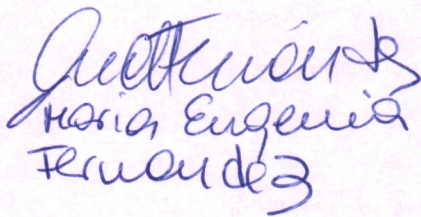 Maria Eugenia
Fernandez